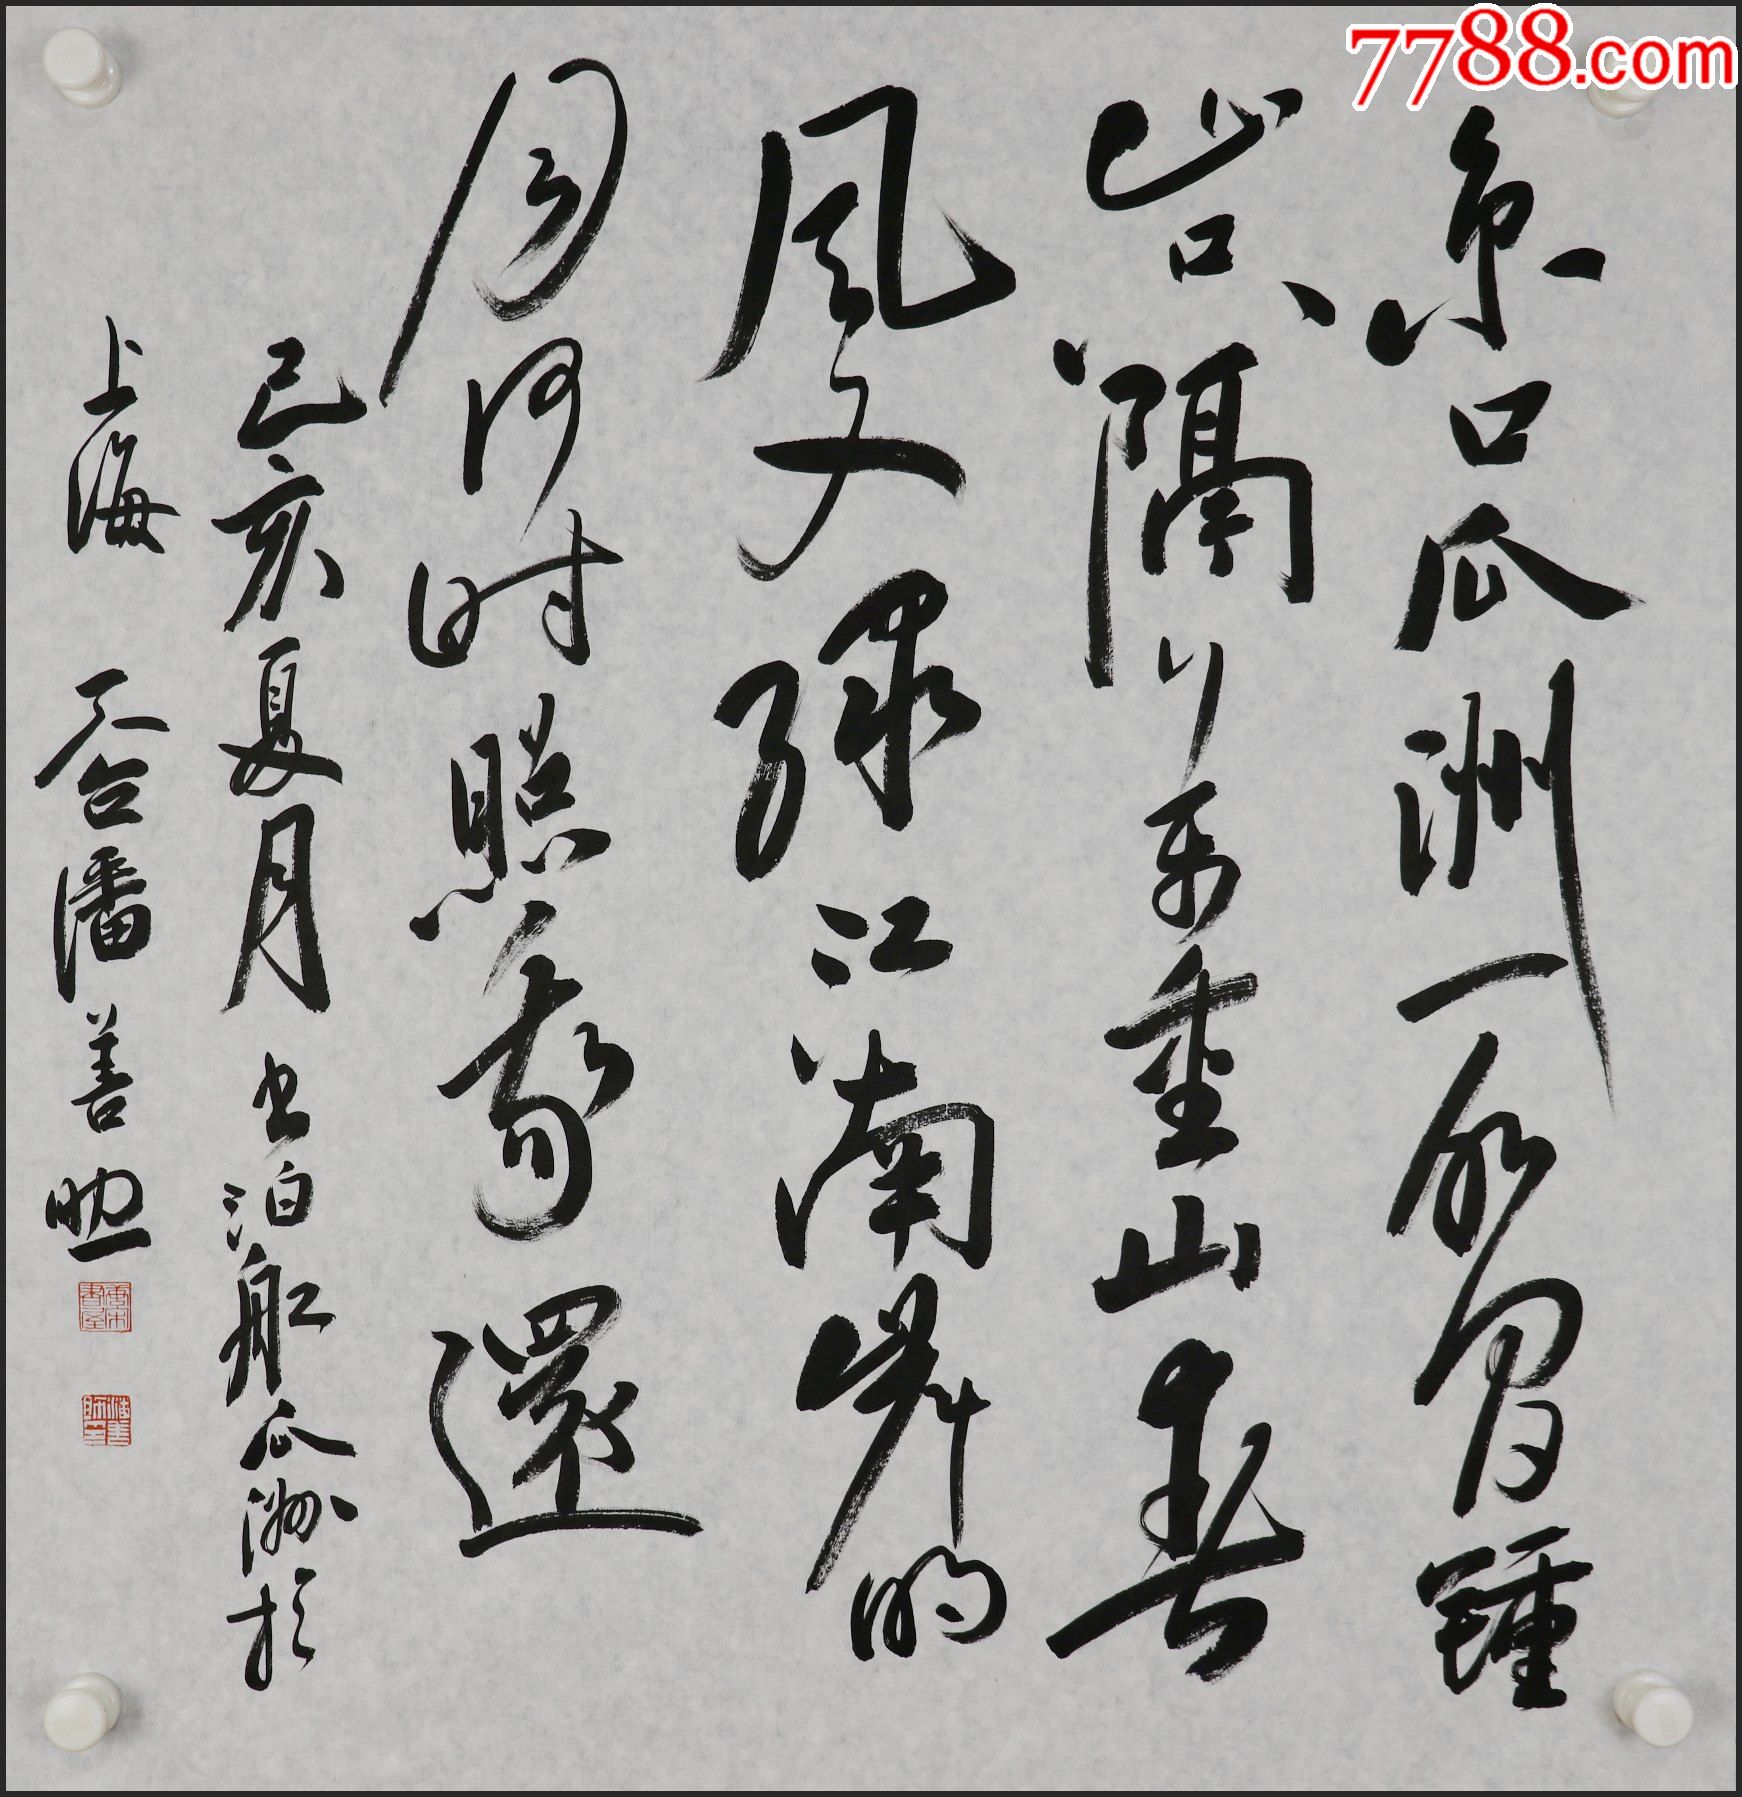 7788.com
京口瓜洲一水間鍾
山只隔數重山春
風又綠江南岸明
月何時照我還
己亥夏月書泊船瓜洲於
上海 天台潘善助